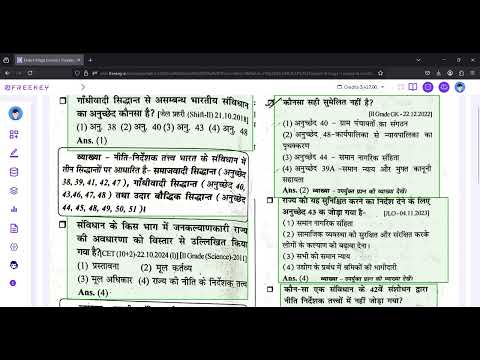 FREEKEY
Credits
गाँधीवादी सिद्धान्त से असम्बन्ध भारतीय संविधान
का अनुच्छेद कौनसा है? [जेल प्रहरी (Shift-II) 21.10.2018]
(1) अनु. 38 (2) अनु. 40 (3) अनु. 43 (4) अनु. 48
Ans. (1)
व्याख्या - नीति-निर्देशक तत्त्व भारत के संविधान में
तीन सिद्धान्तों पर आधारित है- समाजवादी सिद्धान्त (अनुच्छेद
38, 39, 41, 42, 47 ), गाँधीवादी सिद्धान्त (अनुच्छेद 40,
43,46, 47, 48) तथा उदार बौद्धिक सिद्धान्त (अनुच्छेद
44, 45, 48, 49, 50, 51)।
संविधान के किस भाग में जनकल्याणकारी राज्य
की अवधारणा को विस्तार से उल्लिखित किया
गया है?[CET (10+2)-22.10.2024 (I)] [II Grade (Science)-2011]
(1) प्रस्तावना (2) मूल कर्तव्य
(3) मूल अधिकार (4) राज्य की नीति के निर्देशक तत्व
Ans. (4)
कौनसा सही सुमेलित नहीं है?
[II Grade GK - 22.12.2022]
(1) अनुच्छेद 40 - ग्राम पंचायतों का संगठन
(2) अनुच्छेद 48-कार्यपालिका से न्यायपालिका का
पृथक्करण
(3) अनुच्छेद 44 - समान नागरिक संहिता
(4) अनुच्छेद 39A -समान न्याय और मुफ्त कानूनी
सहायता
Ans. (2) व्याख्या - उपर्युक्त प्रश्न की व्याख्या देखें।
राज्य को यह सुनिश्चित करने का निर्देश देने के लिए
अनुच्छेद 43 क जोड़ा गया है- [JLO-04.11.2023]
(1) समान नागरिक संहिता
(2) सामाजिक व्यवस्था को सुरक्षित और संरक्षित करके
लोगों के कल्याण को बढ़ावा देना।
(3) सभी को समान न्याय
(4) उद्योग के प्रबंध में श्रमिकों की भागीदारी
Ans. (4) व्याख्या - उपर्युक्त प्रश्न की व्याख्या देखें।
कौन-सा एक संविधान के 42वें संशोधन द्वारा
नीति निर्देशक तत्त्वों में नहीं जोड़ा गया?